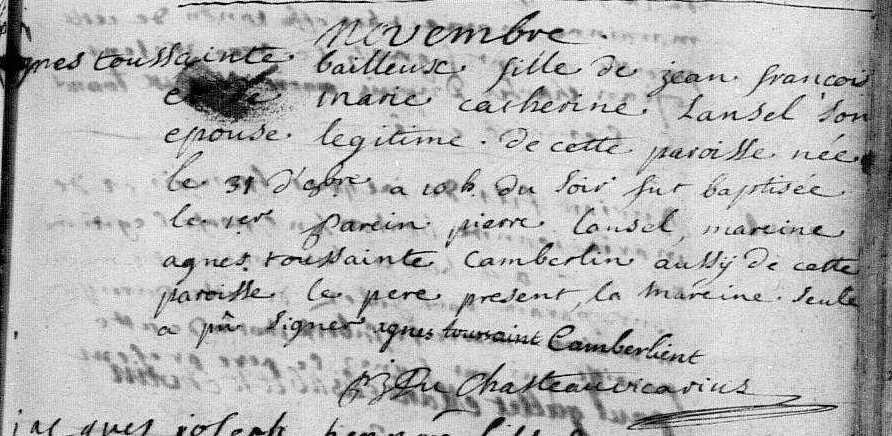 Novembre
agnes toussainte bailleux fille de jean françois
et de marie catherine Lansel son
epouse legitime de cette paroisse née
le 31 d'8bre a 10 h. du soir fut baptisée
le 1er parein pierre lansel, mareine
agnes toussainte Camberlin aussÿ de cette
paroisse le pere present, la mareine seule
a pû signer agnes toussaint Camberlient
Du Chasteau vicarius
jacques joseph